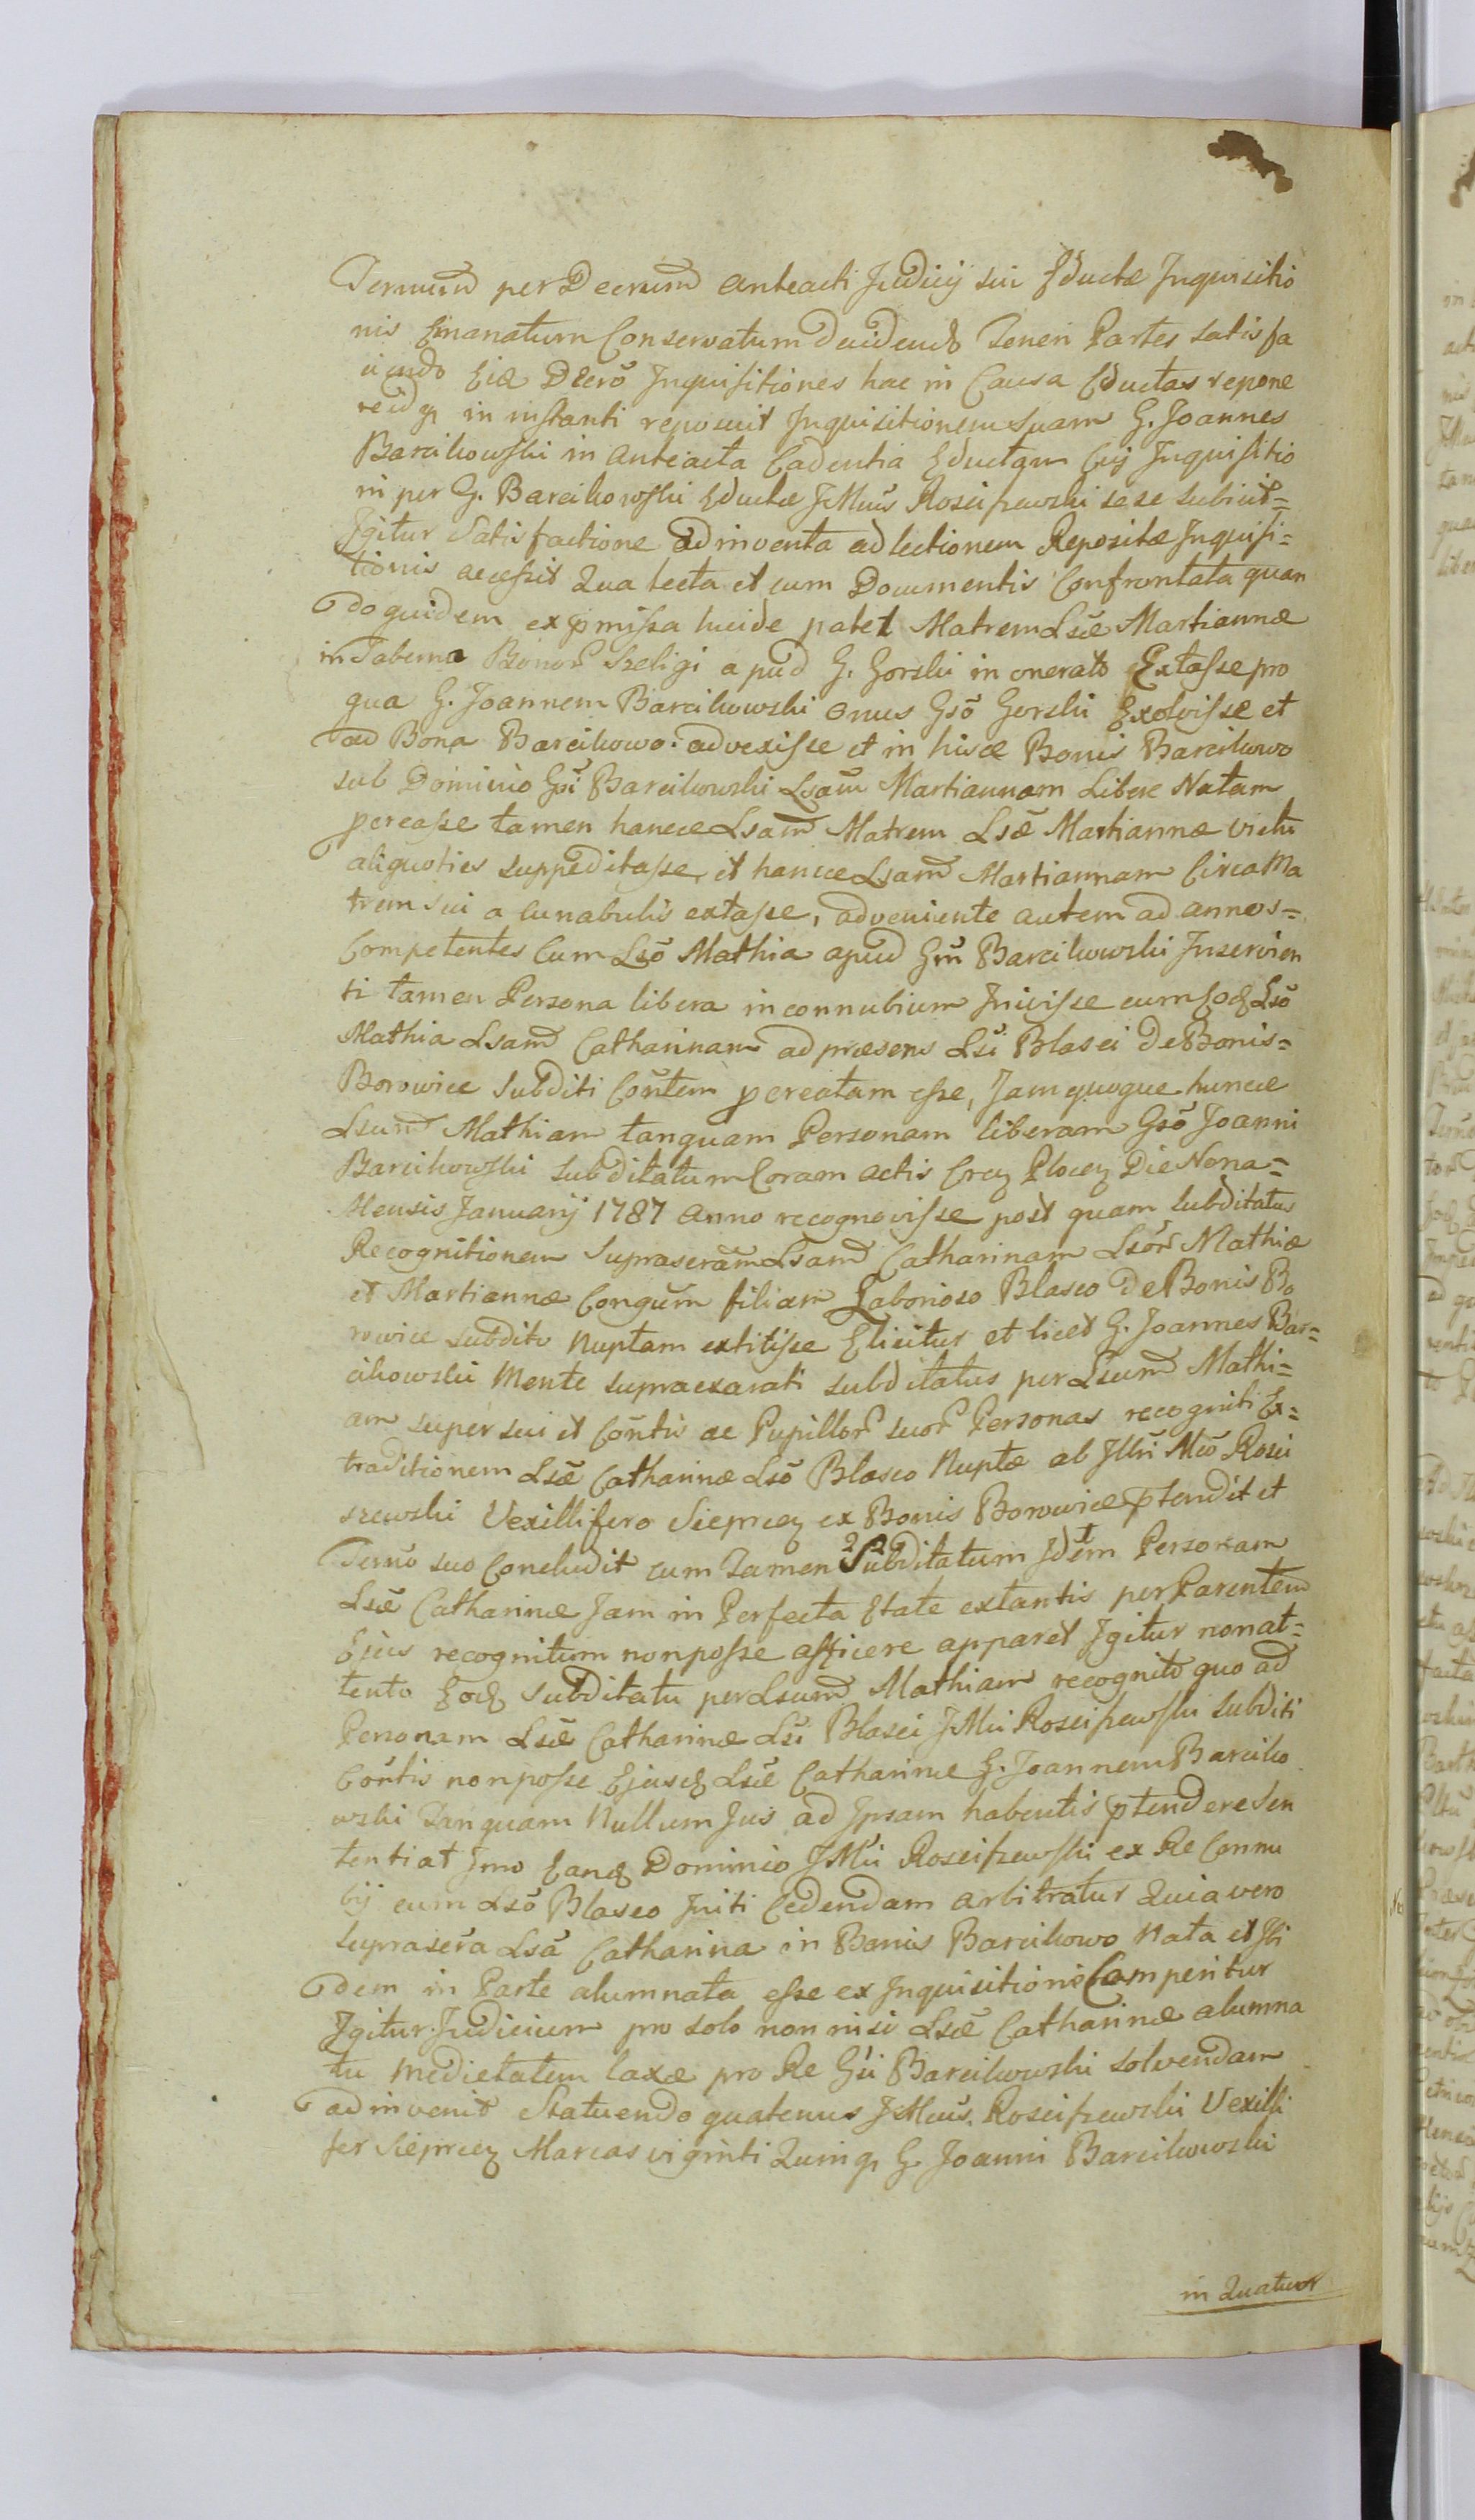 Terminũ per Decrum anteacti Judicij sui Eductæ Inquisitio
nis Emanatum Conservatum decidendo Teneri Partes satisfa
ciendo Eidē Dcrõ Inquisitiones hac in Causa Eductas repone
re idq̃ in instanti reposuit Inquisitionem suam G. Joannes
Barcikowski in anteacta Cadentia Eductam Cuj Inquisitio
ni per G. Barcikowski Eductæ JMus Rosciszewski sese subicit=
Igitur Satisfactione adinventa ad lectionem Repositæ Inquisi=
tionis accessit Qua lecta et cum Documentis Confrontata quan
doquidem ex p̃missa lucide patet Matrem Lsæ Martiannæ
in Taberna Bonor̃ Szeligi apud G. Gorski in onerato Extasse pro
qua G. Joannem Barcikowski onus Gsõ Gorski Exolvisse et
ad Bona Barcikowo advexisse et in hisce Bonis Barcikowo
sub Dominio Gsi Barcikowski Lsam Martiannam Libere Natam
p̱creasse tamen hancce Lsam̃ Matrem Lsæ Martiannæ victu
aliquoties suppeditasse, et hancce Lsam̃ Martiannam Circa Ma
trem sui a cunabulis extasse, adveniente autem ad annos=
Competentes Cum Lsõ Mathia apud Gm̃ Barcikowski Inservien
ti tamen Persona libera in connubium Inivisse eumq̃ Eoḍ Lsõ
Mathia Lsam̃ Catharinam ad præsens Lsi Blasei de Bonis=
Borowice Subditi Cõntem p̱creatam esse, Jam quoque huncce
Lsum̃ Mathiam tanquam Personam liberam Gsõ Joanni
Barcikowski subditatum Coram actis Crẹ Plocẹ Die Nona=
Mensis Januarij 1787 anno recognovisse post quam subditatus
Recognitionem Suprascram̃ Lsam̃ Catharinam Lsõr̃ Mathiæ
et Martiannæ Congum̃ filiam Laborioso Blaseo de Bonis Bo
rowice subdito Nuptam extitisse Elicitur et licet G. Joannes Bar=
cikowski Mente supraexarati subditatus per Lsum̃ Mathi=
am super sui et Cõntis ac Pupillor̃ suor̃ Personas recogniti Ex=
traditionem Lsæ Catharinæ Lsõ Blaseo Nuptæ ab Illri Mcõ Rosci
szewski Vexillifero Sieprcẹ ex Bonis Borowice p̃tendit et
Termõ suo Concludit cum Tamen Subditatum Idem Personam
Lsæ Catharinæ Jam in Perfecta Etate extantis per Parentem
Ejus recognitum non posse afficere apparet Igitur non at=
tento Eoḍ Subditatu per Lsum̃ Mathiam recognito quo ad
Personam Lsæ Catharinæ Lsi Blasei JMci Rosciszewski subditi
Cõntis non posse Ejusḍ Lsæ Catharinæ G. Joannem Barciko
wski Tanquam Nullum Jus ad Ipsam habentis p̃tendere Sen
tentiat Imo Eanḍ Dominio JMci Rosciszewski ex Re Connu
bij cum Lsõ Blaseo Initi Cedendam arbitratur Quia vero
suprascra Lsa Catharina in Bonis Barcikowo Nata et Ibi
dem in Parte alumnata esse ex Inquisitione Comperitur
Igitur Judicium pro solo non nisi Lsæ Catharinæ alumna
tu medietatem taxæ pro Re Gsi Barcikowski solvendam
adinvenit Statuendo quatenus JMcus Rosciszewski Vexilli
fer Sieprcẹ Marcas viginti Quinq̃ G. Joanni Barcikowski
in Quatuor